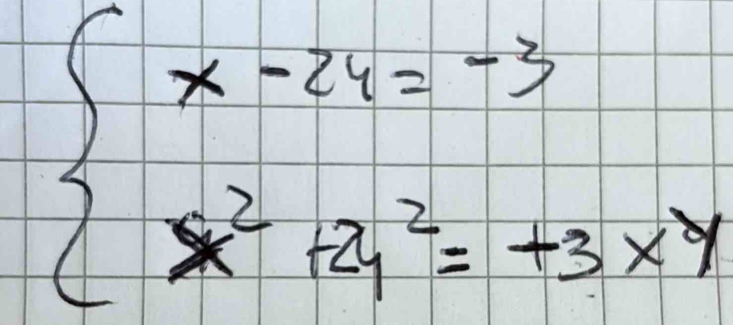 x - 2y = -3
x² + 2y² = +3xy